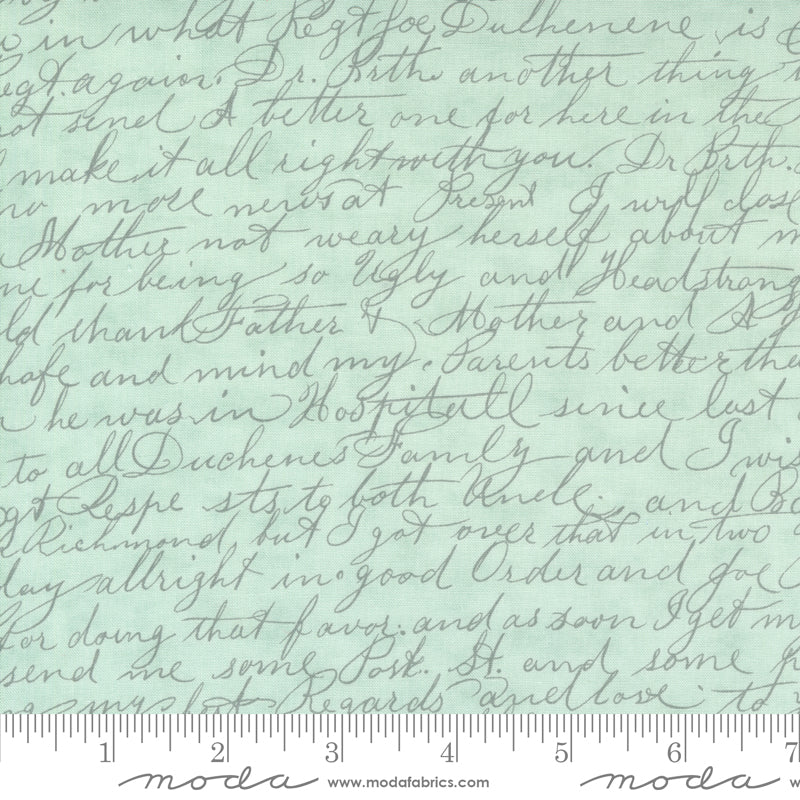 in what Regt Joe Duchenene is
Regt. again. Dr. Brth. another thing
not send A better one for here in the
make it all right with you. Dr Brth.
no more news at Present I will close
Mother not weary herself about
me for being so Ugly and Headstrong
thank Father & Mother and A
hafe and mind my. Parents better
he was in Hospitall since last
to all Duchenes Family and I
Respe sts to both Uncle. and
Richmond, but I got over that in two
day allright in good Order and Joe
for doing that favor. and as soon I get
send me some Post. St. and some
my best Regards and love to
1 2 3 4 5 6 7
moda www.modafabrics.com moda